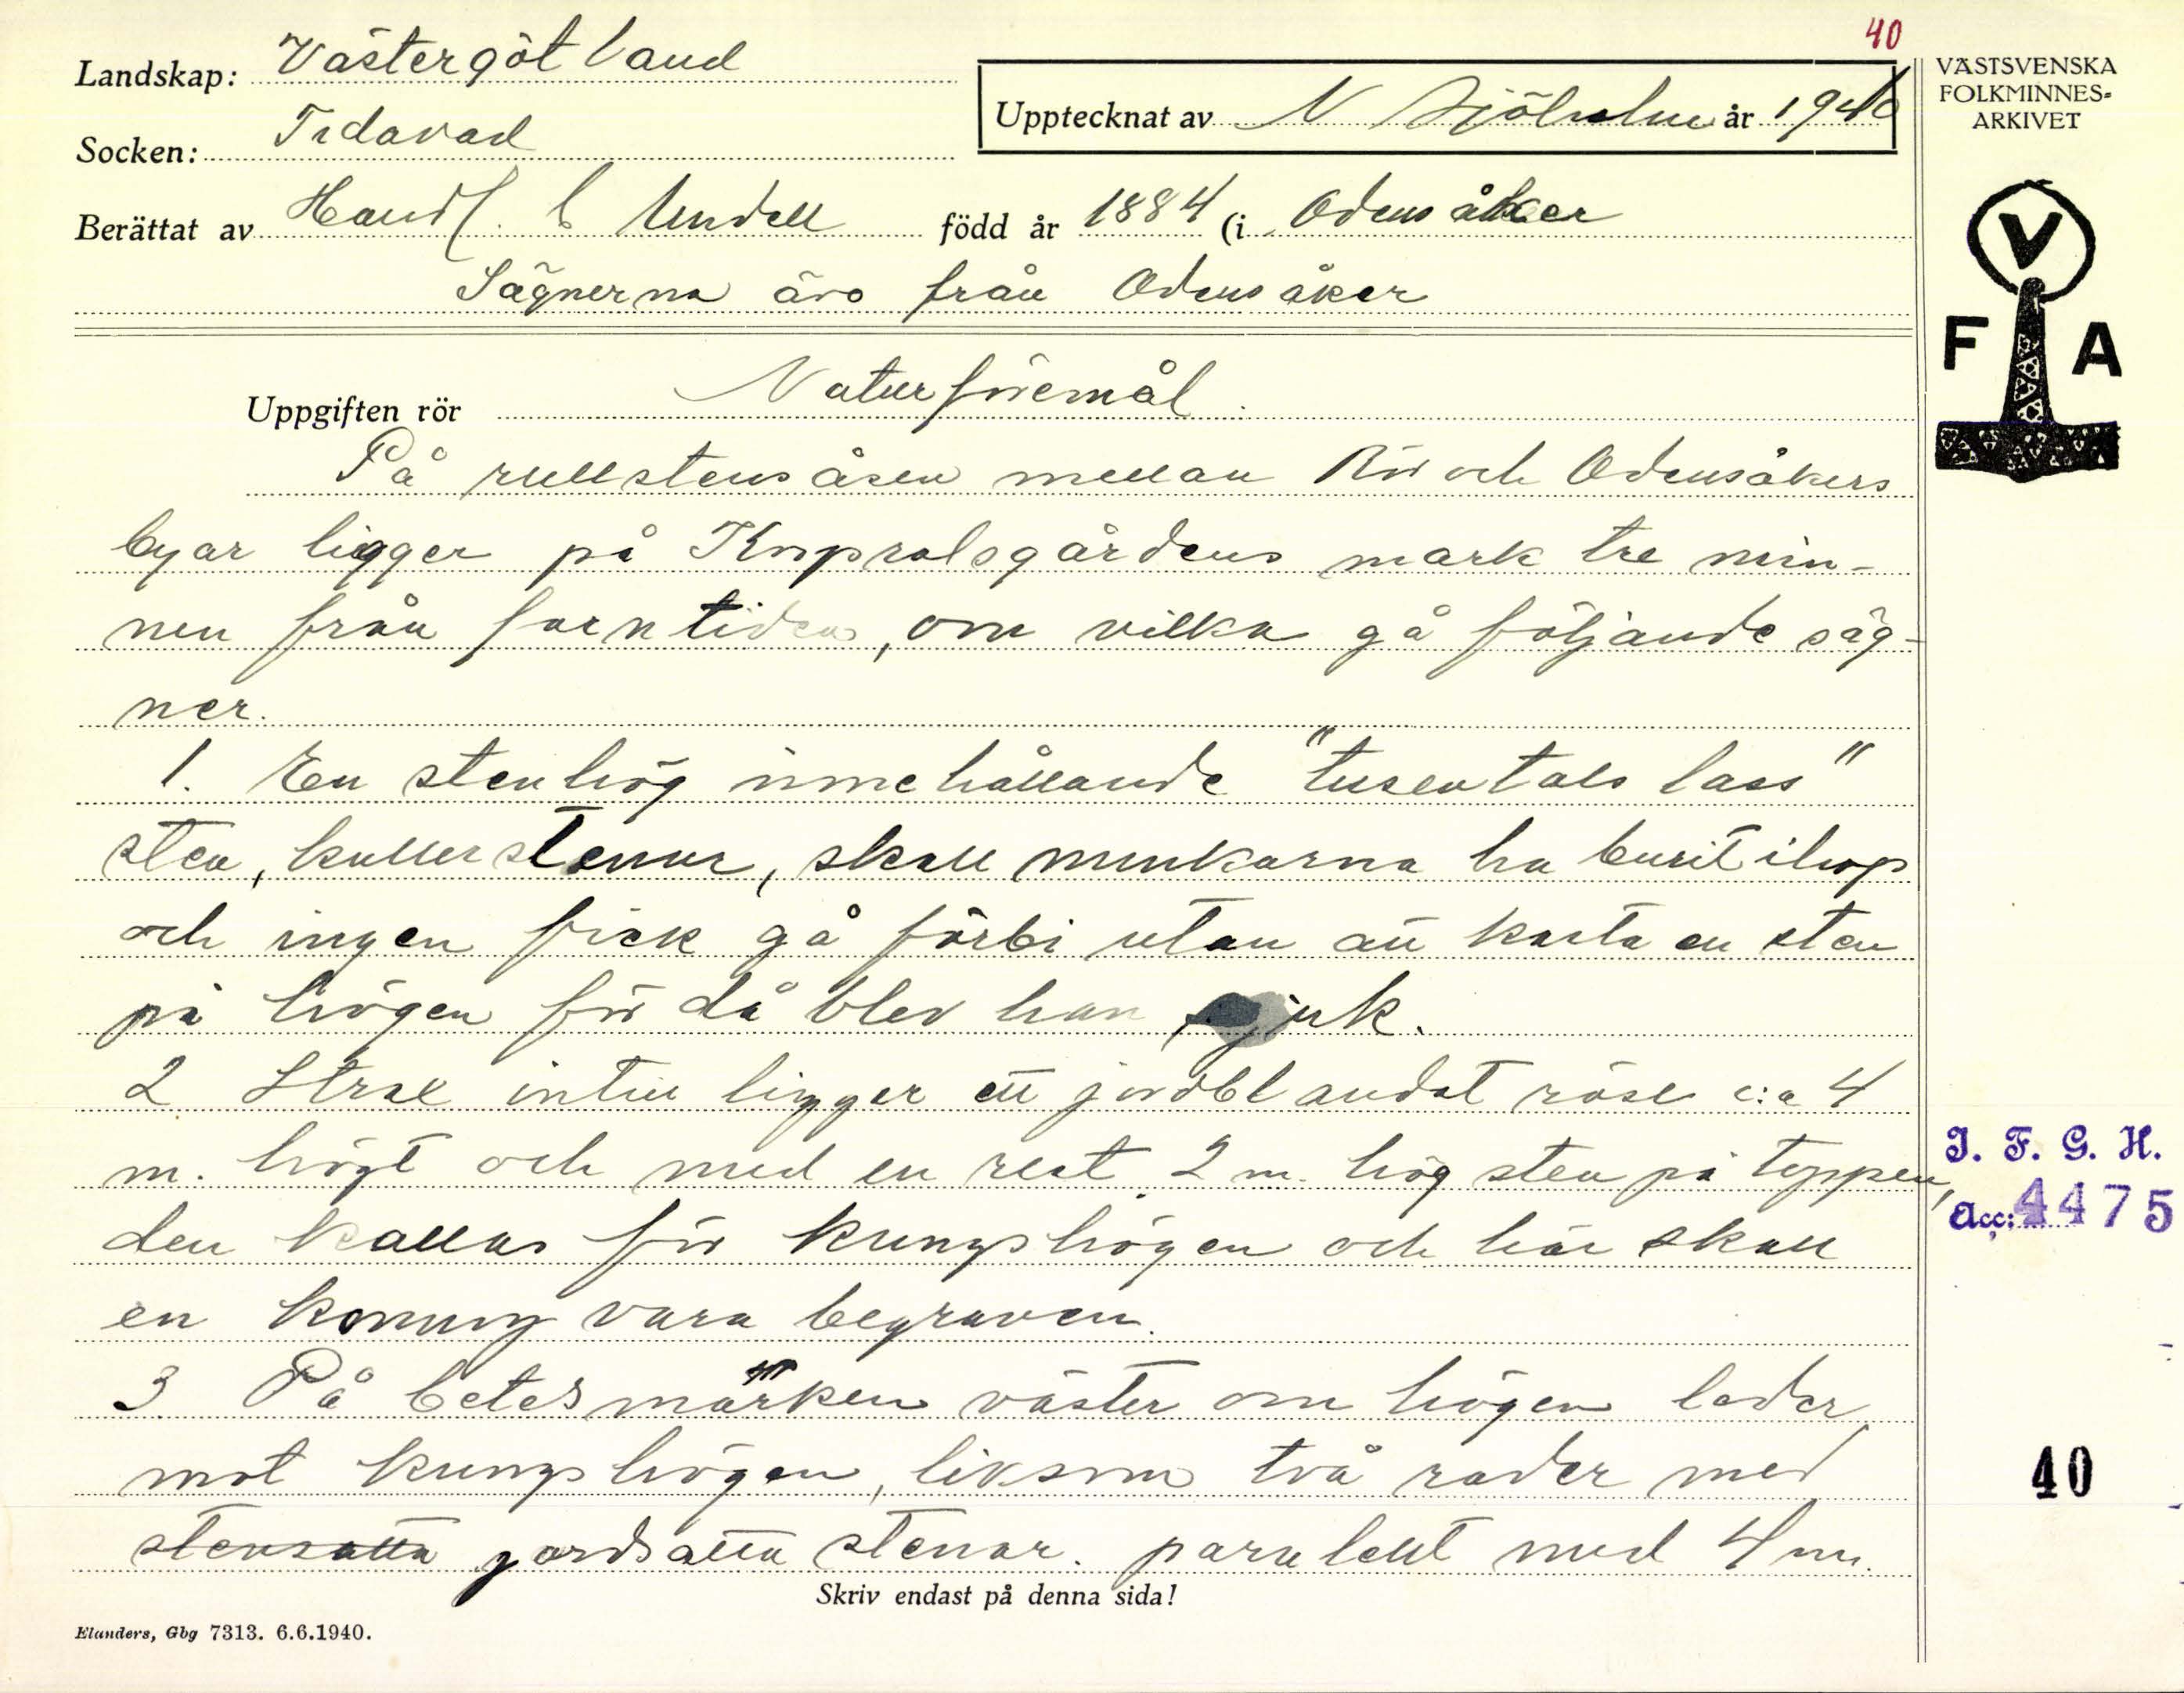 40
Landskap: Västergötland
VÄSTSVENSKA
FOLKMINNES-
ARKIVET
Upptecknat av N Sjöholm år 1940
Socken: Tidavad
Berättat av Handl. C Undell född år 1884 (i Odensåker
Sägnerna äro från Odensåker
V
F A
Uppgiften rör Naturföremål.
På rullstensåsen mellan Rör och Odensåkers
byar ligger på Korpralsgårdens mark tre min-
nen från forntiden, om vilka gå följande säg-
ner.
1. En stenhög innehållande "tusentals lass"
sten, kullerstenar, skall munkarna ha burit ihop
och ingen fick gå förbi utan att kasta en sten
på högen för då blev han sjuk.
2 Strax intill ligger ett jordblandat röse c:a 4
m. högt och med en rest 2 m. hög sten på toppen,
den kallas för kungshögen och här skall
en konung vara begraven.
3 På betesmarken väster om högen leder
mot kungshögen, liksom två rader med
stensatta jordsatta stenar. paralellt med 4 m.
Skriv endast på denna sida!
Elanders, Gbg 7313. 6.6.1940.
I. F. G. H.
Acc: 4475
40